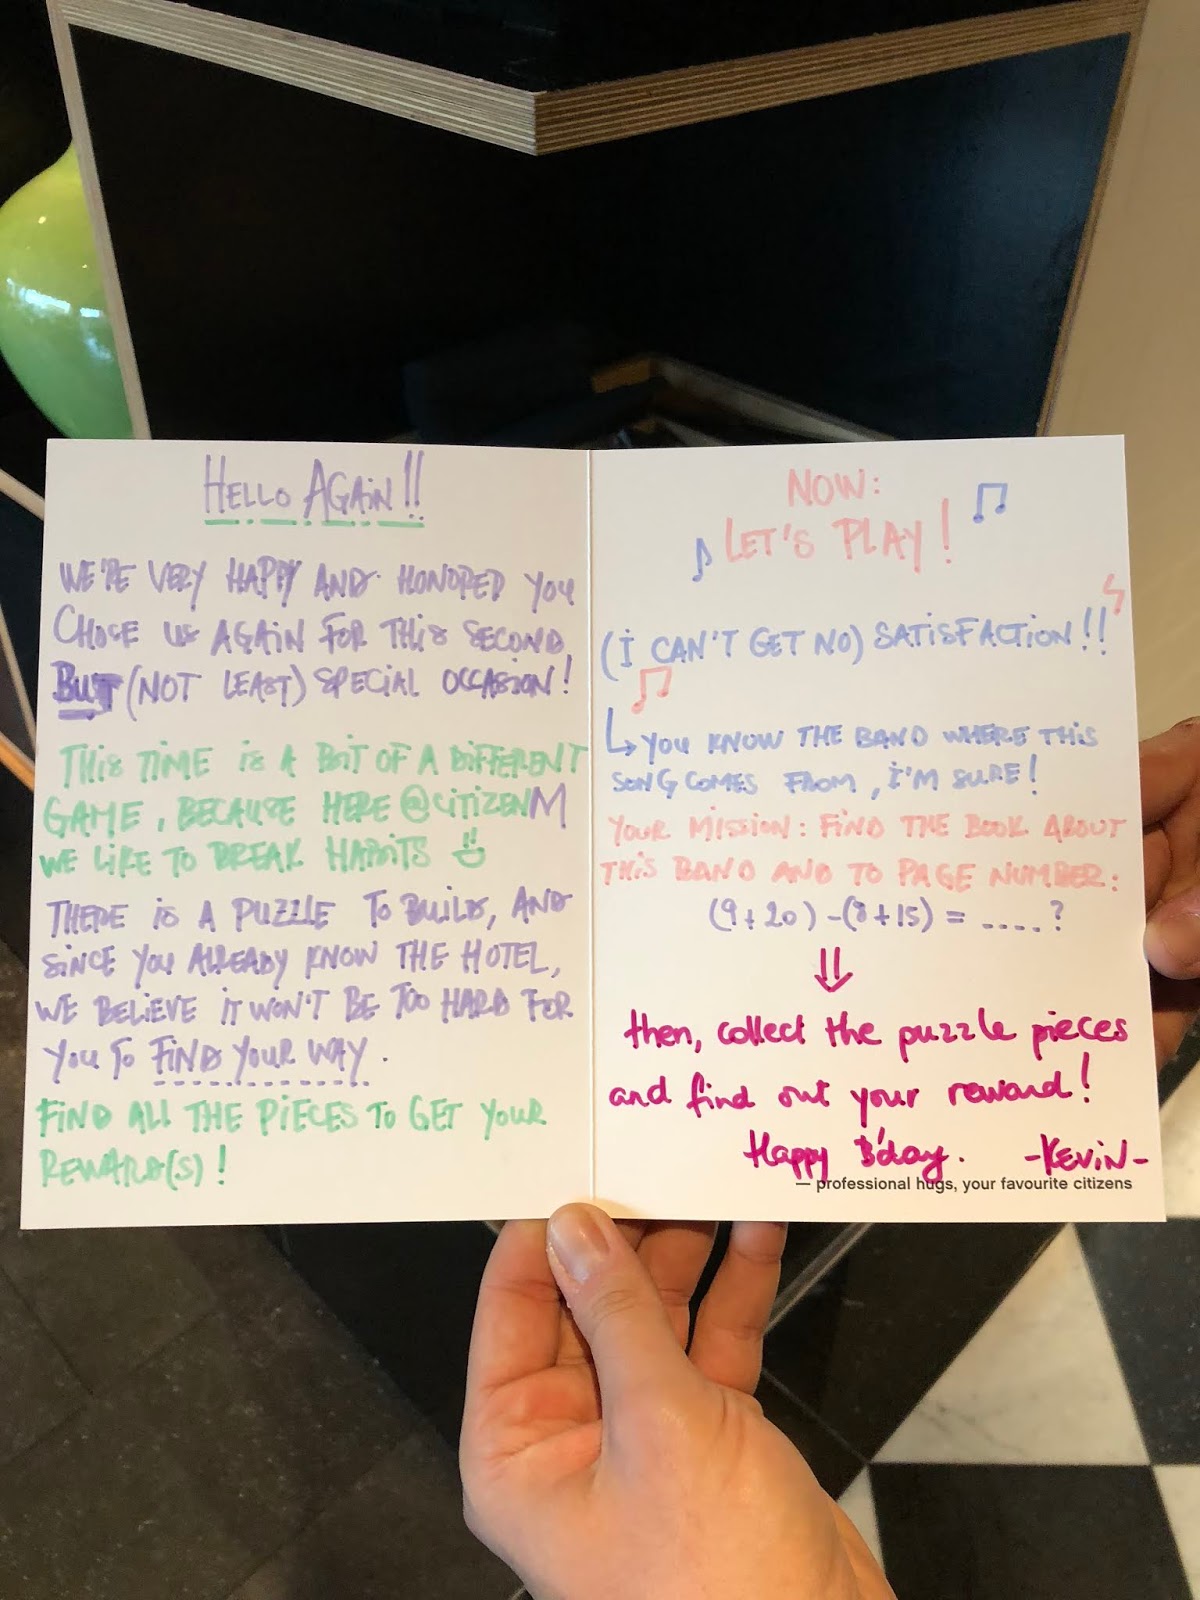 HELLO AGAIN!!
WE'RE VERY HAPPY AND HONORED YOU
CHOSE US AGAIN FOR THIS SECOND
BUT (NOT LEAST) SPECIAL OCCASION!
THIS TIME IS A BIT OF A DIFFERENT
GAME, BECAUSE HERE @CITIZENM
WE LIKE TO BREAK HABITS
THERE IS A PUZZLE TO BUILD, AND
SINCE YOU ALREADY KNOW THE HOTEL,
WE BELIEVE IT WON'T BE TOO HARD FOR
YOU TO FIND YOUR WAY.
FIND ALL THE PIECES TO GET YOUR
REWARD(S)!
NOW:
LET'S PLAY!
(I CAN'T GET NO) SATISFACTION!!
YOU KNOW THE BAND WHERE THIS
SONG COMES FROM, I'M SURE!
YOUR MISSION: FIND THE BOOK ABOUT
THIS BAND AND TO PAGE NUMBER:
(9+20)-(8+15) = ....?
then, collect the puzzle pieces
and find out your reward!
Happy B'day. -KEVIN-
— professional hugs, your favourite citizens